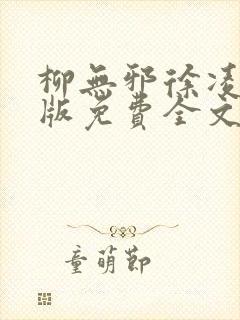 柳無邪徐凌
版免費全文
童萌節